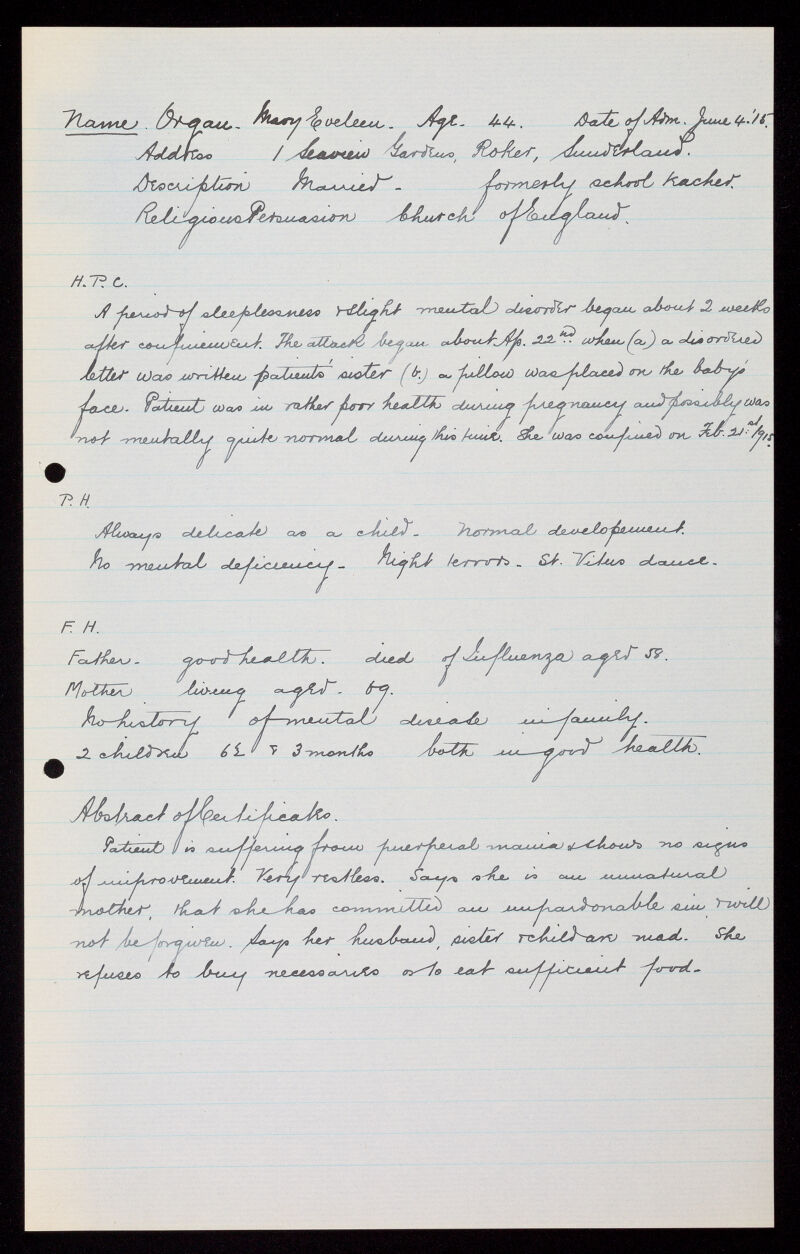 Name. Organ. Mary Eveleen. Age. 44. Date of Adm. June 4.'15.
Address 1 Seaview Gardens, Roker, Sunderland.
Description Married - formerly school teacher.
Religious Persuasion Church of England.
H.P.C.
A period of sleeplessness & slight mental disorder began about 2 weeks
after confinement. The attack began about Ap. 22nd. when (a) a disordered
letter was written patients' sister (b.) a pillow was placed on the baby's
face. Patient was in rather poor health during pregnancy and possibly was
not mentally quite normal during this time. She was confined on Feb. 21st 1915.
P.H.
Always delicate as a child - Normal developement.
No mental deficiency - Night terrors - St. Vitus dance -
F.H.
Father - good health. died of Influenza aged 58.
Mother living aged. 69.
No history of mental disease in family.
2 children 6½ & 3 months both in good health.
Abstract of Certificates.
Patient is suffering from puerperal mania & shows no signs
of improvement. Very restless. Says she is an unnatural
mother, that she has committed an unpardonable sin, & will
not be forgiven. Says her husband, sister & child are mad. She
refuses to buy necessaries or to eat sufficient food -